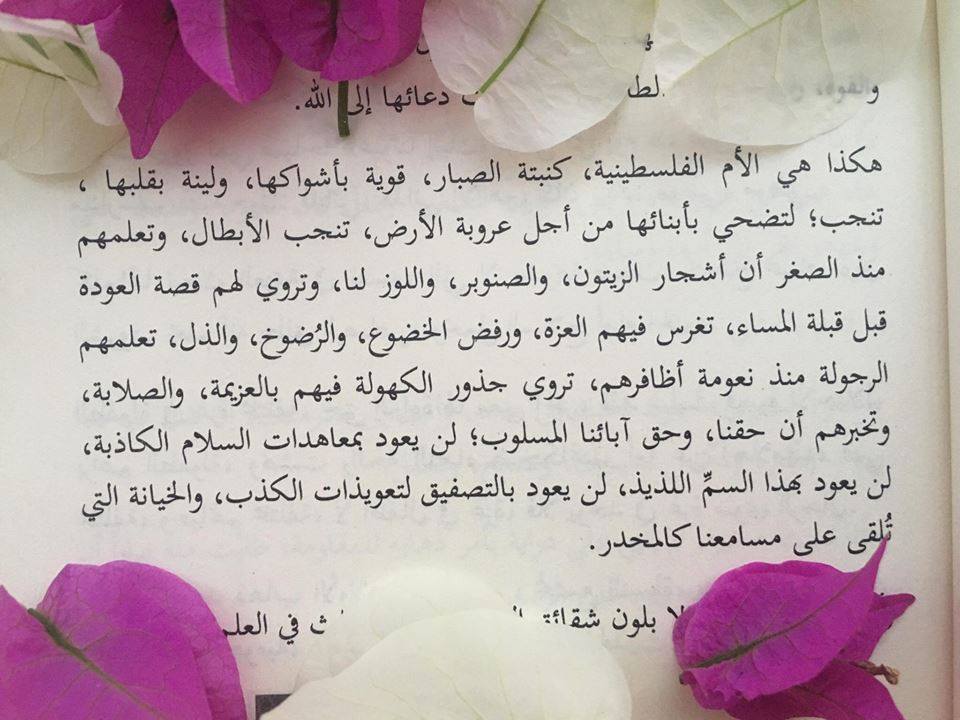 والقوة، دعائها إلى الله.
هكذا هي الأم الفلسطينية، كنبتة الصبار، قوية بأشواكها، ولينة بقلبها ،
تنجب؛ لتضحي بأبنائها من أجل عروبة الأرض، تنجب الأبطال، وتعلمهم
منذ الصغر أن أشجار الزيتون، والصنوبر، واللوز لنا، وتروي لهم قصة العودة
قبل قبلة المساء، تغرس فيهم العزة، ورفض الخضوع، والرُضوخ، والذل، تعلمهم
الرجولة منذ نعومة أظافرهم، تروي جذور الكهولة فيهم بالعزيمة، والصلابة،
وتخبرهم أن حقنا، وحق آبائنا المسلوب؛ لن يعود بمعاهدات السلام الكاذبة،
لن يعود بهذا السمِّ اللذيذ، لن يعود بالتصفيق لتعويذات الكذب، والخيانة التي
تُلقى على مسامعنا كالمخدر.
بلون شقائق في